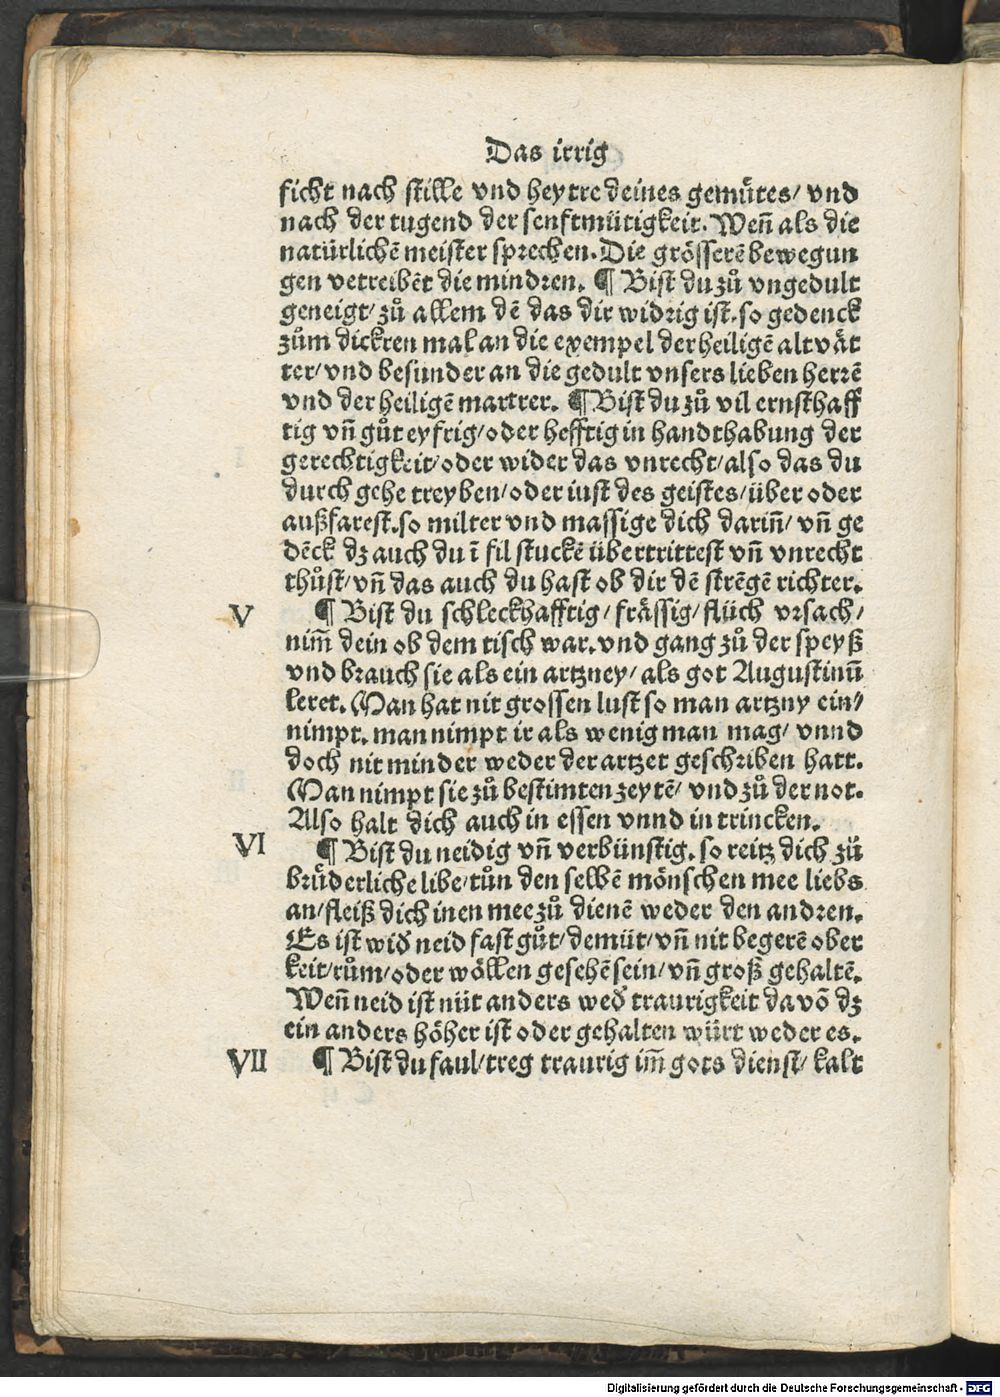 Das irrig
ficht nach stille vnd heytre deines gemuͤtes/ vnd
nach der tugend der senftmütigkeit. Weñ als die
natürlichē meister sprechen. Die grösserē bewegun
gen vetreibēt die mindren. ¶ Bist du zů vngedult
geneigt/ zů allem dē das dir widrig ist. so gedenck
zům dickren mal an die exempel der heiligē altvaͤt
ter/ vnd besunder an die gedult vnsers lieben herrē
vnd der heiligē martrer. ¶ Bist du zů vil ernsthaff
tig vñ gůt eyfrig/ oder hefftig in handthabung der
gerechtigkeit/ oder wider das vnrecht/ also das du
durch gehe treyben/ oder iust des geistes/ über oder
außfarest. so milter vnd massige dich dariñ/ vñ ge
dēck dz auch du ī fil stuckē übertrittest vñ vnrecht
thůst/ vñ das auch du hast ob dir dē strēgē richter.
V ¶ Bist du schleckhafftig/ fraͤssig/ flüch vrsach/
nim̄ dein ob dem tisch war. vnd gang zů der speyß
vnd brauch sie als ein artzney/ als got Augustinū
leret. Man hat nit grossen lust so man artzny ein/
nimpt. man nimpt ir als wenig man mag/ vnnd
doch nit minder weder der artzet geschriben hatt.
Man nimpt sie zů bestimten zeytē/ vnd zů der not.
Also halt dich auch in essen vnnd in trincken.
VI ¶ Bist du neidig vñ verbünstig. so reitz dich zů
bruͤderliche libe/ tůn den selbē mönschen mee liebs
an/ fleiß dich inen mee zů dienē weder den andren.
Es ist wid̛ neid fast gůt/ demüt/ vñ nit begerē ober
keit/ rům/ oder wöllen gesehē sein/ vñ groß gehaltē.
Weñ neid ist nüt anders wed̛ traurigkeit da vō dz
ein anders höher ist oder gehalten würt weder es.
VII ¶ Bist du faul/ treg traurig im̄ gots dienst/ kalt
Digitalisierung gefördert durch die Deutsche Forschungsgemeinschaft - DFG